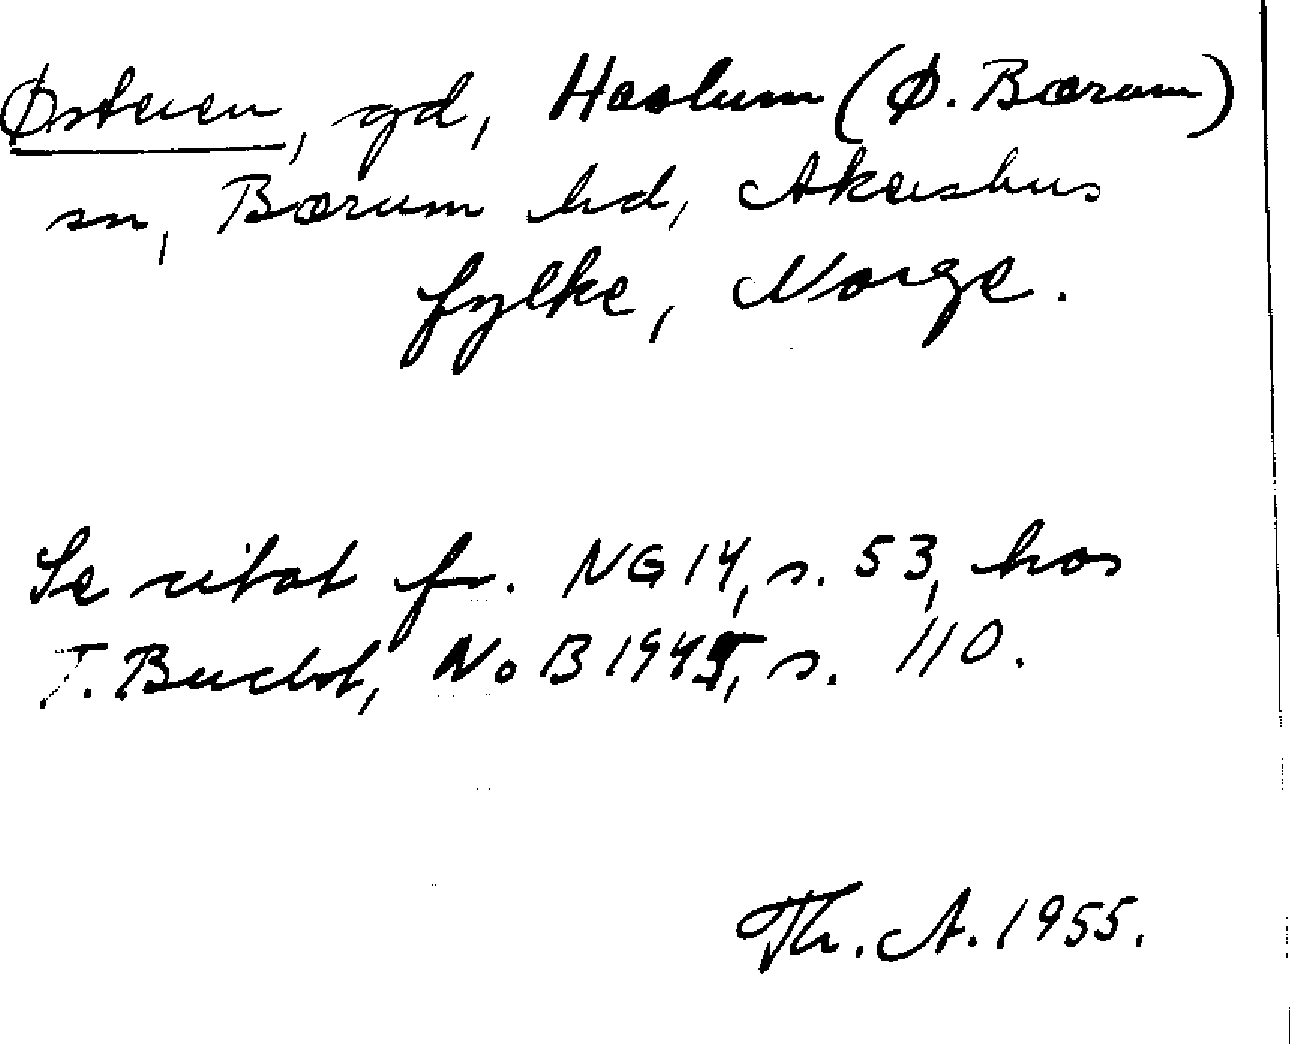 Østeien, gd, Haslum (Ø. Bærum)
sn, Bærum hd, Akershus
fylke, Norge.
Se citat fr. NG 14, s. 53, hos
T. Bucht, NoB 1945, s. 110.
Th. A. 1955.